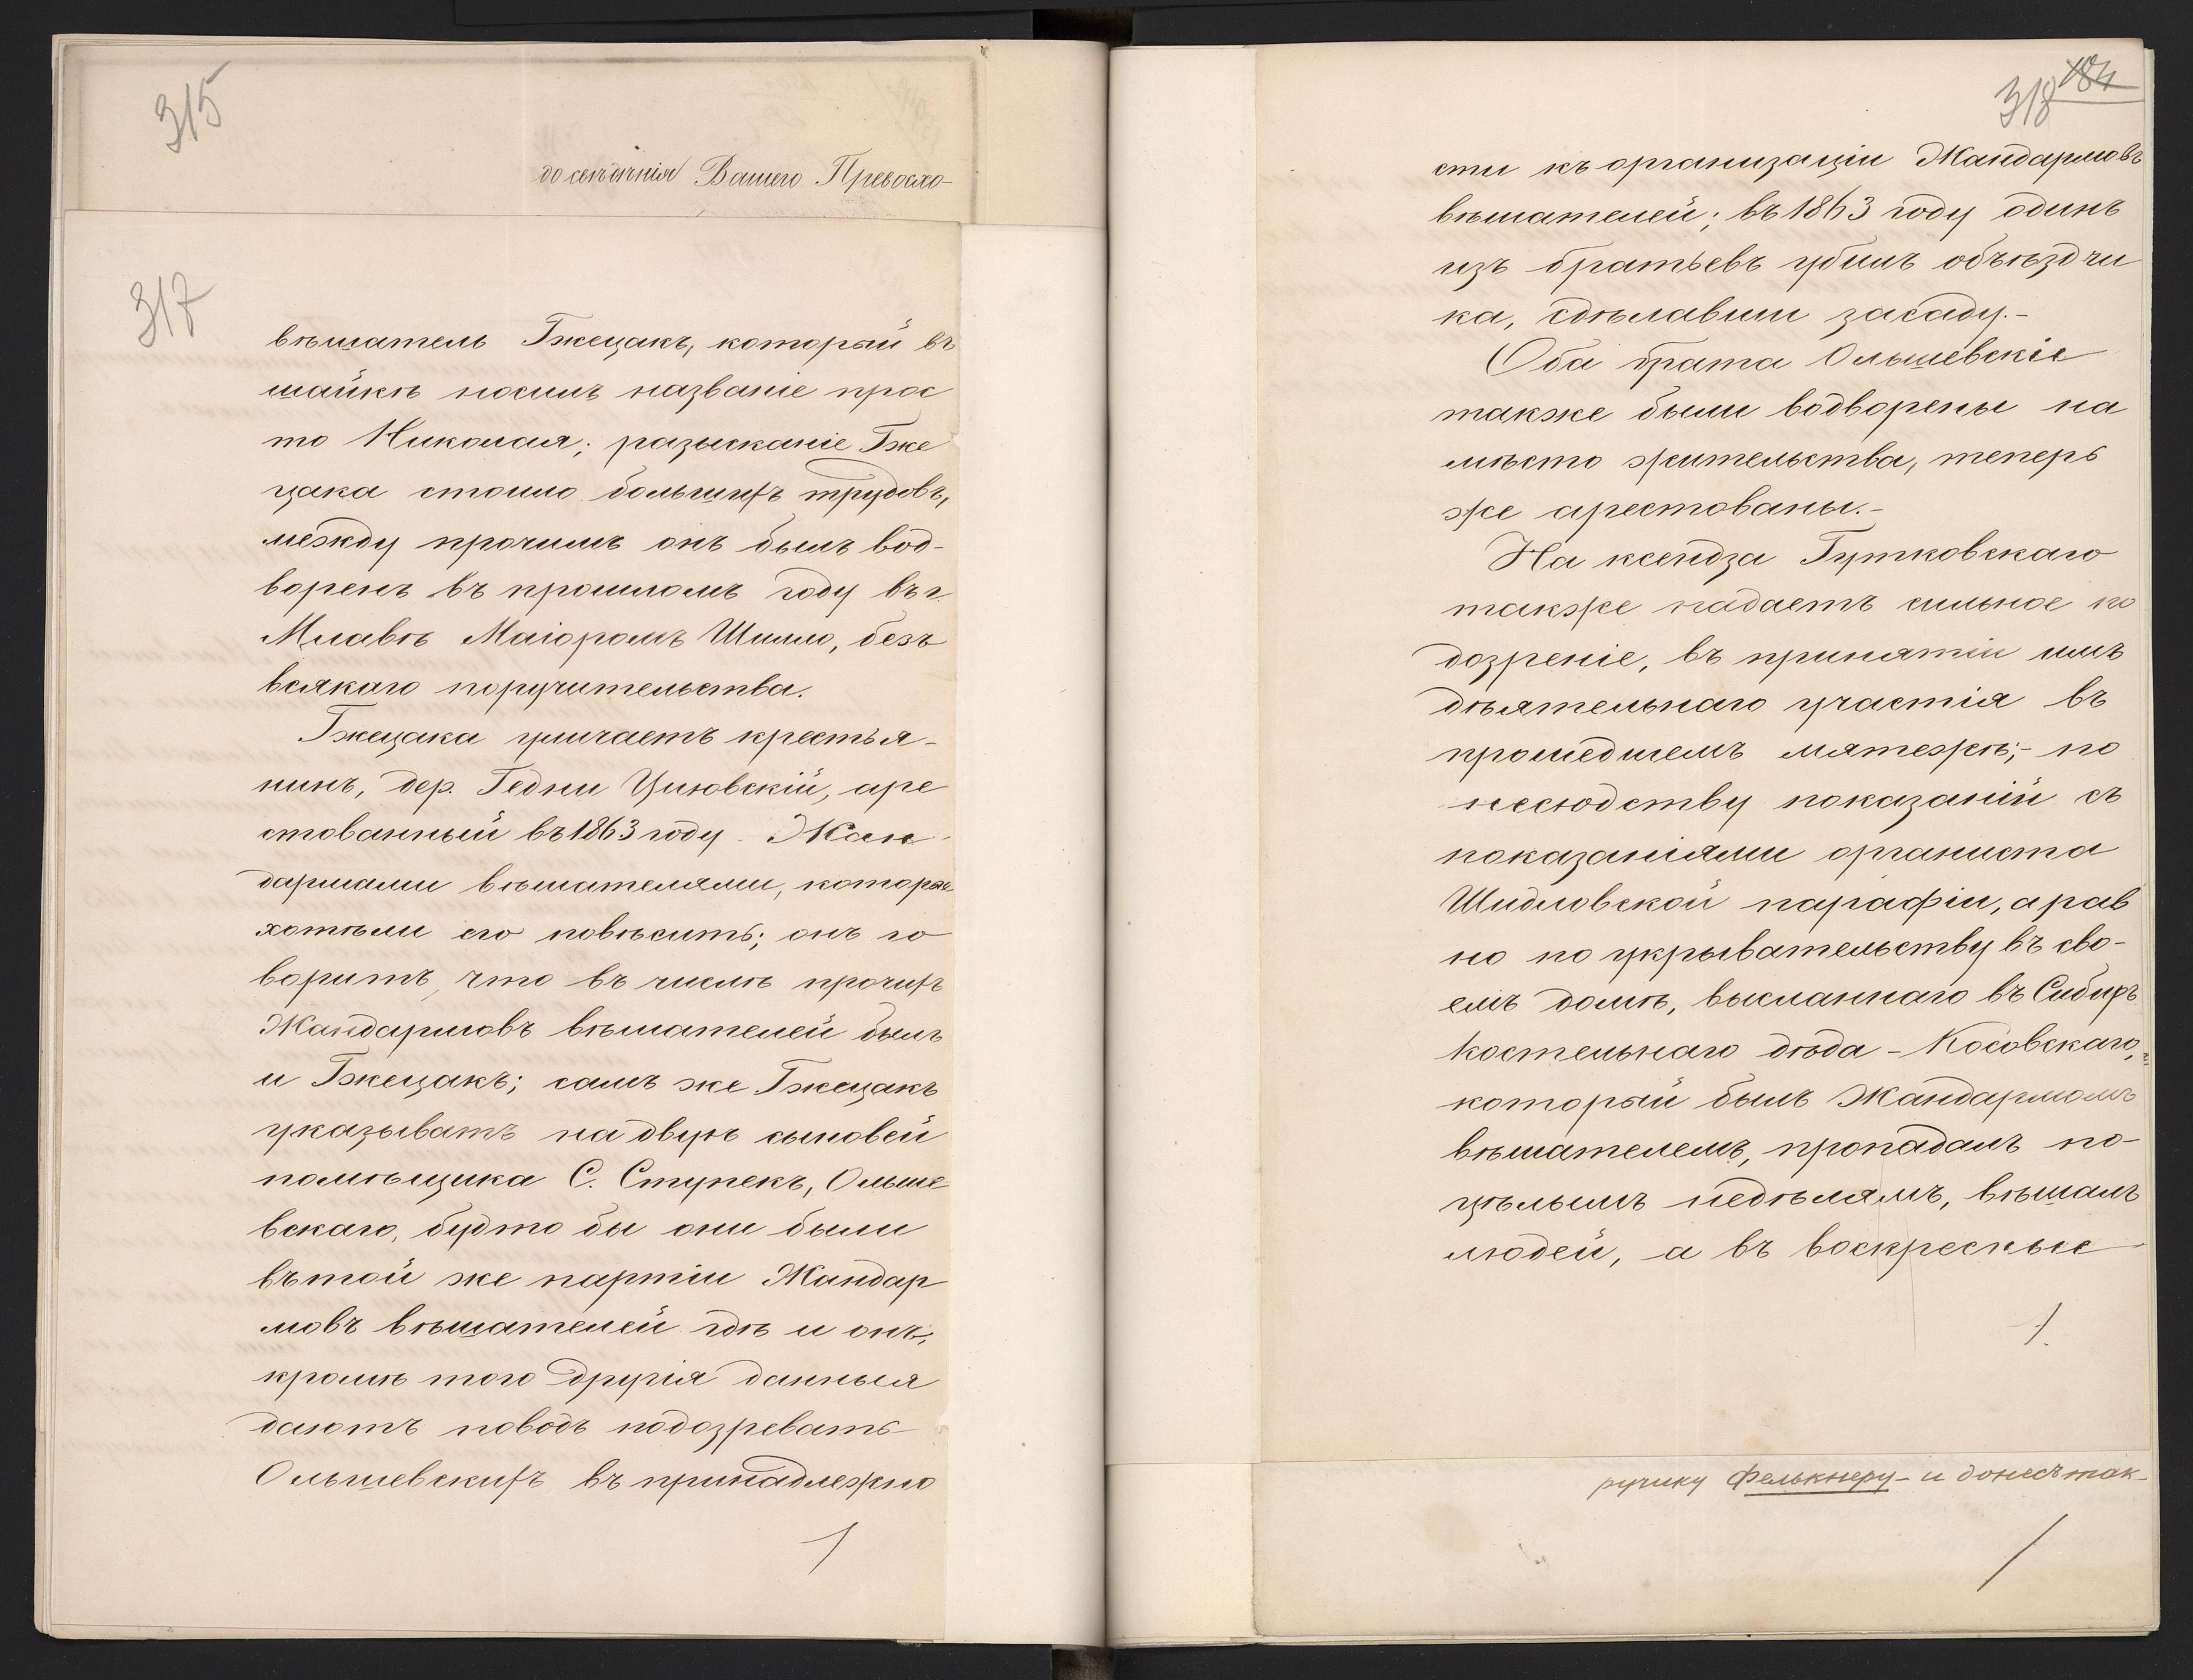 315
до свѣдѣнія Вашего Превосхо-
317
вѣшатель Гжецакъ, который въ
шайкѣ носилъ названіе прос
то Николая; разысканіе Гже
цака стоило большихъ трудовъ,
между прочимъ онъ былъ вод-
воренъ въ прошломъ году въ г.
Млавѣ Маіоромъ Шилло, безъ
всякаго поручительства.
Гжецака уличаетъ крестья-
нинъ, дер. Гедни Циховскій, аре
стованный въ 1863 году Жан-
дармами вѣшателями, которые
хотѣли его повѣсить; онъ го
воритъ, что въ числѣ прочихъ
Жандармовъ вѣшателей былъ
и Гжецакъ; самъ же Гжецакъ
указываетъ на двухъ сыновей
помѣщика С. Ступекъ, Ольше
вскаго, будто бы они были
въ той же партіи Жандар
мовъ вѣшателей гдѣ и онъ;
кромѣ того другія данныя
даютъ поводъ подозревать
Ольшевскихъ въ принадлежно
1
318 184
сти къ организаціи Жандармовъ
вѣшателей; въ 1863 году одинъ
изъ братьевъ убилъ объѣздчи
ка, сдѣлавши засаду.-
Оба брата Ольшевскіе
также были водворены на
мѣсто жительства, теперь
же арестованы.-
На ксендза Гутковскаго
также падаетъ сильное по
дозреніе, въ принятіи имъ
дѣятельнаго участія въ
прошедшемъ мятежѣ;- по
несходству показаній съ
показаніями органиста
Шидловской парафіи, а рав
но по укрывательству въ сво-
емъ домѣ, высланнаго въ Сибирь
костельнаго дѣда - Косовскаго,
который былъ Жандармомъ
вѣшателемъ, пропадалъ по-
цѣлымъ недѣлямъ, вѣшалъ
людей, а въ воскресные
1.
ручику Фелькнеру - и донесъ так-